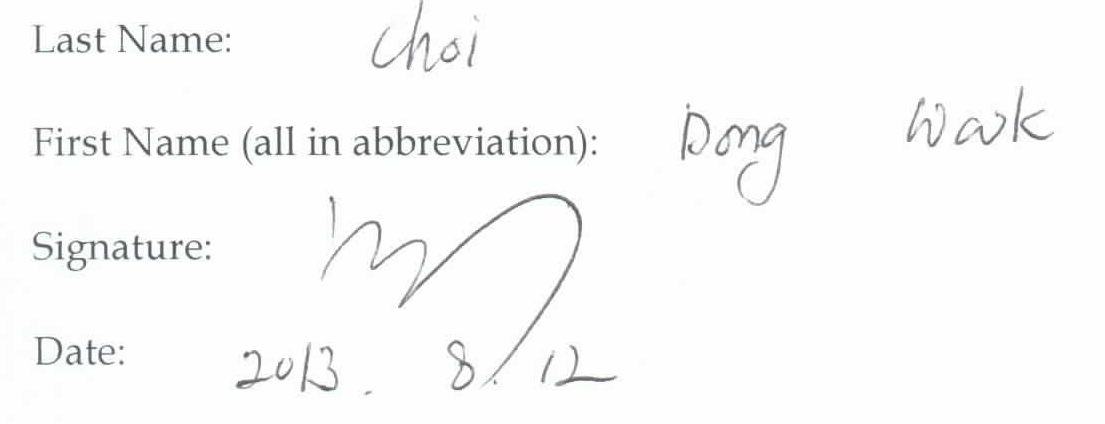 Last Name: Choi
First Name (all in abbreviation): Dong Wook
Signature:
Date: 2013. 8. 12